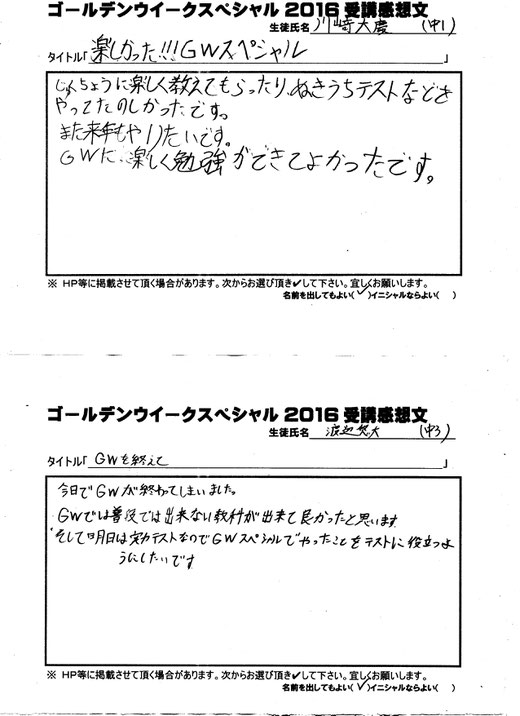 ゴールデンウイークスペシャル 2016 受講感想文
生徒氏名 川崎大慶 (中1)
タイトル「楽しかった!!!GWスペシャル 」
じゅくちょうに楽しく教えてもらったり、ぬきうちテストなどを
やってたのしかったです。
また来年もやりたいです。
GWに、楽しく勉強ができてよかったです。
※ HP等に掲載させて頂く場合があります。次からお選び頂き✔して下さい。宜しくお願いします。
名前を出してもよい(✓)イニシャルならよい( )
ゴールデンウイークスペシャル 2016 受講感想文
生徒氏名 渡辺悠大 (中3)
タイトル「 GWを終えて 」
今日でGWが終わってしまいました。
GWでは普段では出来ない教科が出来て良かったと思います
そして明日は実力テストなのでGWスペシャルでやったことをテストに役立つよ
うにしたいです
※ HP等に掲載させて頂く場合があります。次からお選び頂き✔して下さい。宜しくお願いします。
名前を出してもよい(✓)イニシャルならよい( )